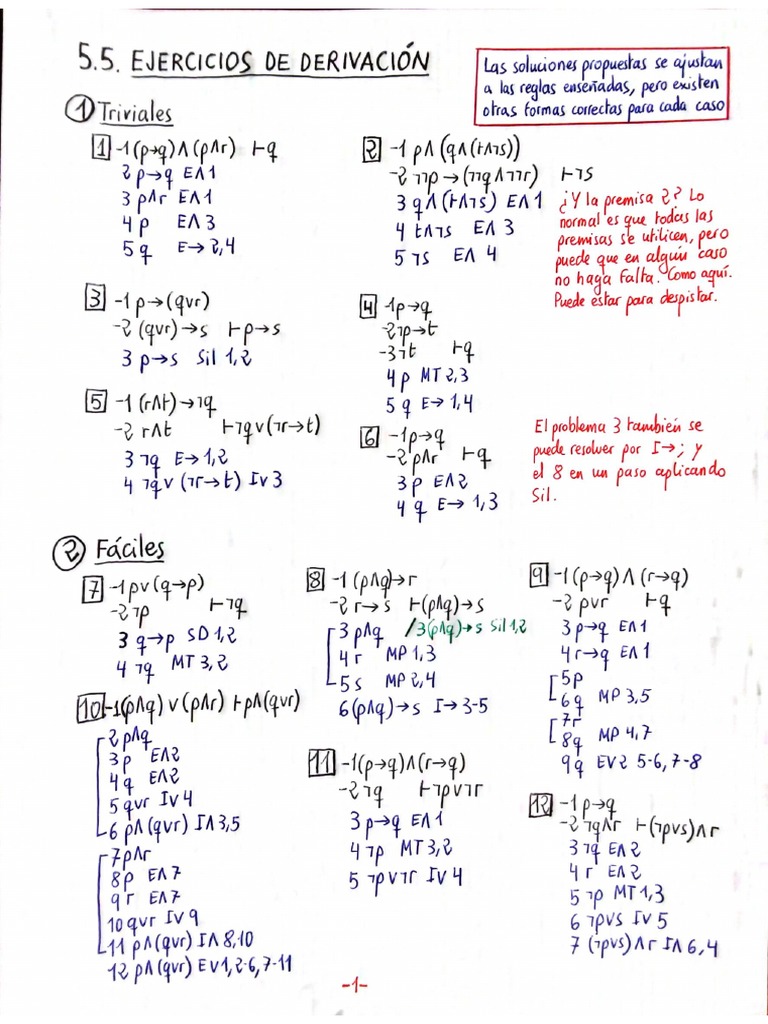 5.5. EJERCICIOS DE DERIVACIÓN
Las soluciones propuestas se ajustan
a las reglas enseñadas, pero existen
otras formas correctas para cada caso
① Triviales
1 -1(p→q)∧(p∧r) ⊢q
2 p→q E∧1
3 p∧r E∧1
4 p E∧3
5 q E→ 2,4
2 -1 p∧(q∧(t∧¬s))
-2 ¬¬p→(¬¬q∧¬¬r) ⊢¬s
3 q∧(t∧¬s) E∧ 1
4 t∧¬s E∧ 3
5 ¬s E∧ 4
¿Y la premisa 2? Lo
normal es que todas las
premisas se utilicen, pero
puede que en algún caso
no haga falta. Como aquí.
Puede estar para despistar.
3 -1 p→(qvr)
-2 (qvr)→s ⊢p→s
3 p→s Sil 1,2
4 -1p→q
-2¬p→t
-3¬t ⊢q
4 p MT 2,3
5 q E→ 1,4
5 -1 (r∧t)→¬q
-2 r∧t ⊢¬qv(¬r→t)
3 ¬q E→1,2
4 ¬qv(¬r→t) Iv3
6 -1p→q
-2p∧r ⊢q
3 p E∧2
4 q E→ 1,3
El problema 3 también se
puede resolver por I→; y
el 8 en un paso aplicando
Sil.
② Fáciles
7 -1pv(q→p)
-2¬p ⊢¬q
3 q→p SD 1,2
4 ¬q MT 3,2
8 -1 (p∧q)→r
-2 r→s ⊢(p∧q)→s
3 p∧q /3(p∧q)→s Sil 1,2
4 r MP 1,3
5 s MP 2,4
6(p∧q)→s I→3-5
9 -1(p→q)∧(r→q)
-2 pvr ⊢q
3p→q E∧1
4r→q E∧1
5p
6q MP 3,5
7r
8q MP 4,7
9q EV2 5-6,7-8
10 -1(p∧q)v(p∧r) ⊢p∧(qvr)
2p∧q
3p E∧2
4q E∧2
5 qvr Iv4
6 p∧(qvr) I∧3,5
7p∧r
8p E∧7
9r E∧7
10 qvr Iv9
11 p∧(qvr) I∧ 8,10
12 p∧(qvr) Ev1,2-6,7-11
11 -1(p→q)∧(r→q)
-2¬q ⊢¬pv¬r
3 p→q E∧1
4 ¬p MT 3,2
5 ¬pv¬r Iv4
12 -1 p→q
-2¬q∧r ⊢(¬pvs)∧r
3 ¬q E∧2
4 r E∧2
5 ¬p MT1,3
6 ¬pvs Iv5
7 (¬pvs)∧r I∧ 6,4
-1-